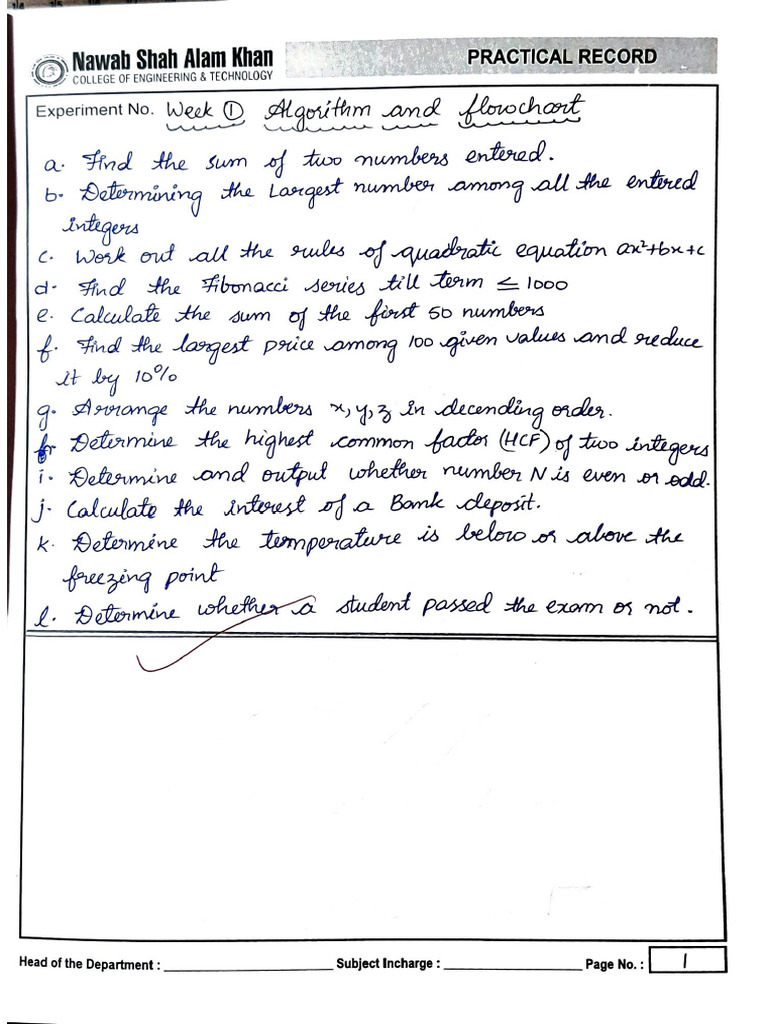 Nawab Shah Alam Khan
COLLEGE OF ENGINEERING & TECHNOLOGY
PRACTICAL RECORD
Experiment No. Week ① Algorithm and flowchart
a. Find the sum of two numbers entered.
b. Determining the Largest number among all the entered
integers
c. Work out all the rules of quadratic equation ax²+bx+c
d. Find the Fibonacci series till term ≤ 1000
e. Calculate the sum of the first 50 numbers
f. Find the largest price among 100 given values and reduce
it by 10%
g. Arrange the numbers x, y, z in decending order.
h. Determine the highest common factor (HCF) of two integers
i. Determine and output whether number N is even or odd.
j. Calculate the interest of a Bank deposit.
k. Determine the temperature is below or above the
freezing point
l. Determine whether a student passed the exam or not.
Head of the Department : Subject Incharge : Page No. : 1